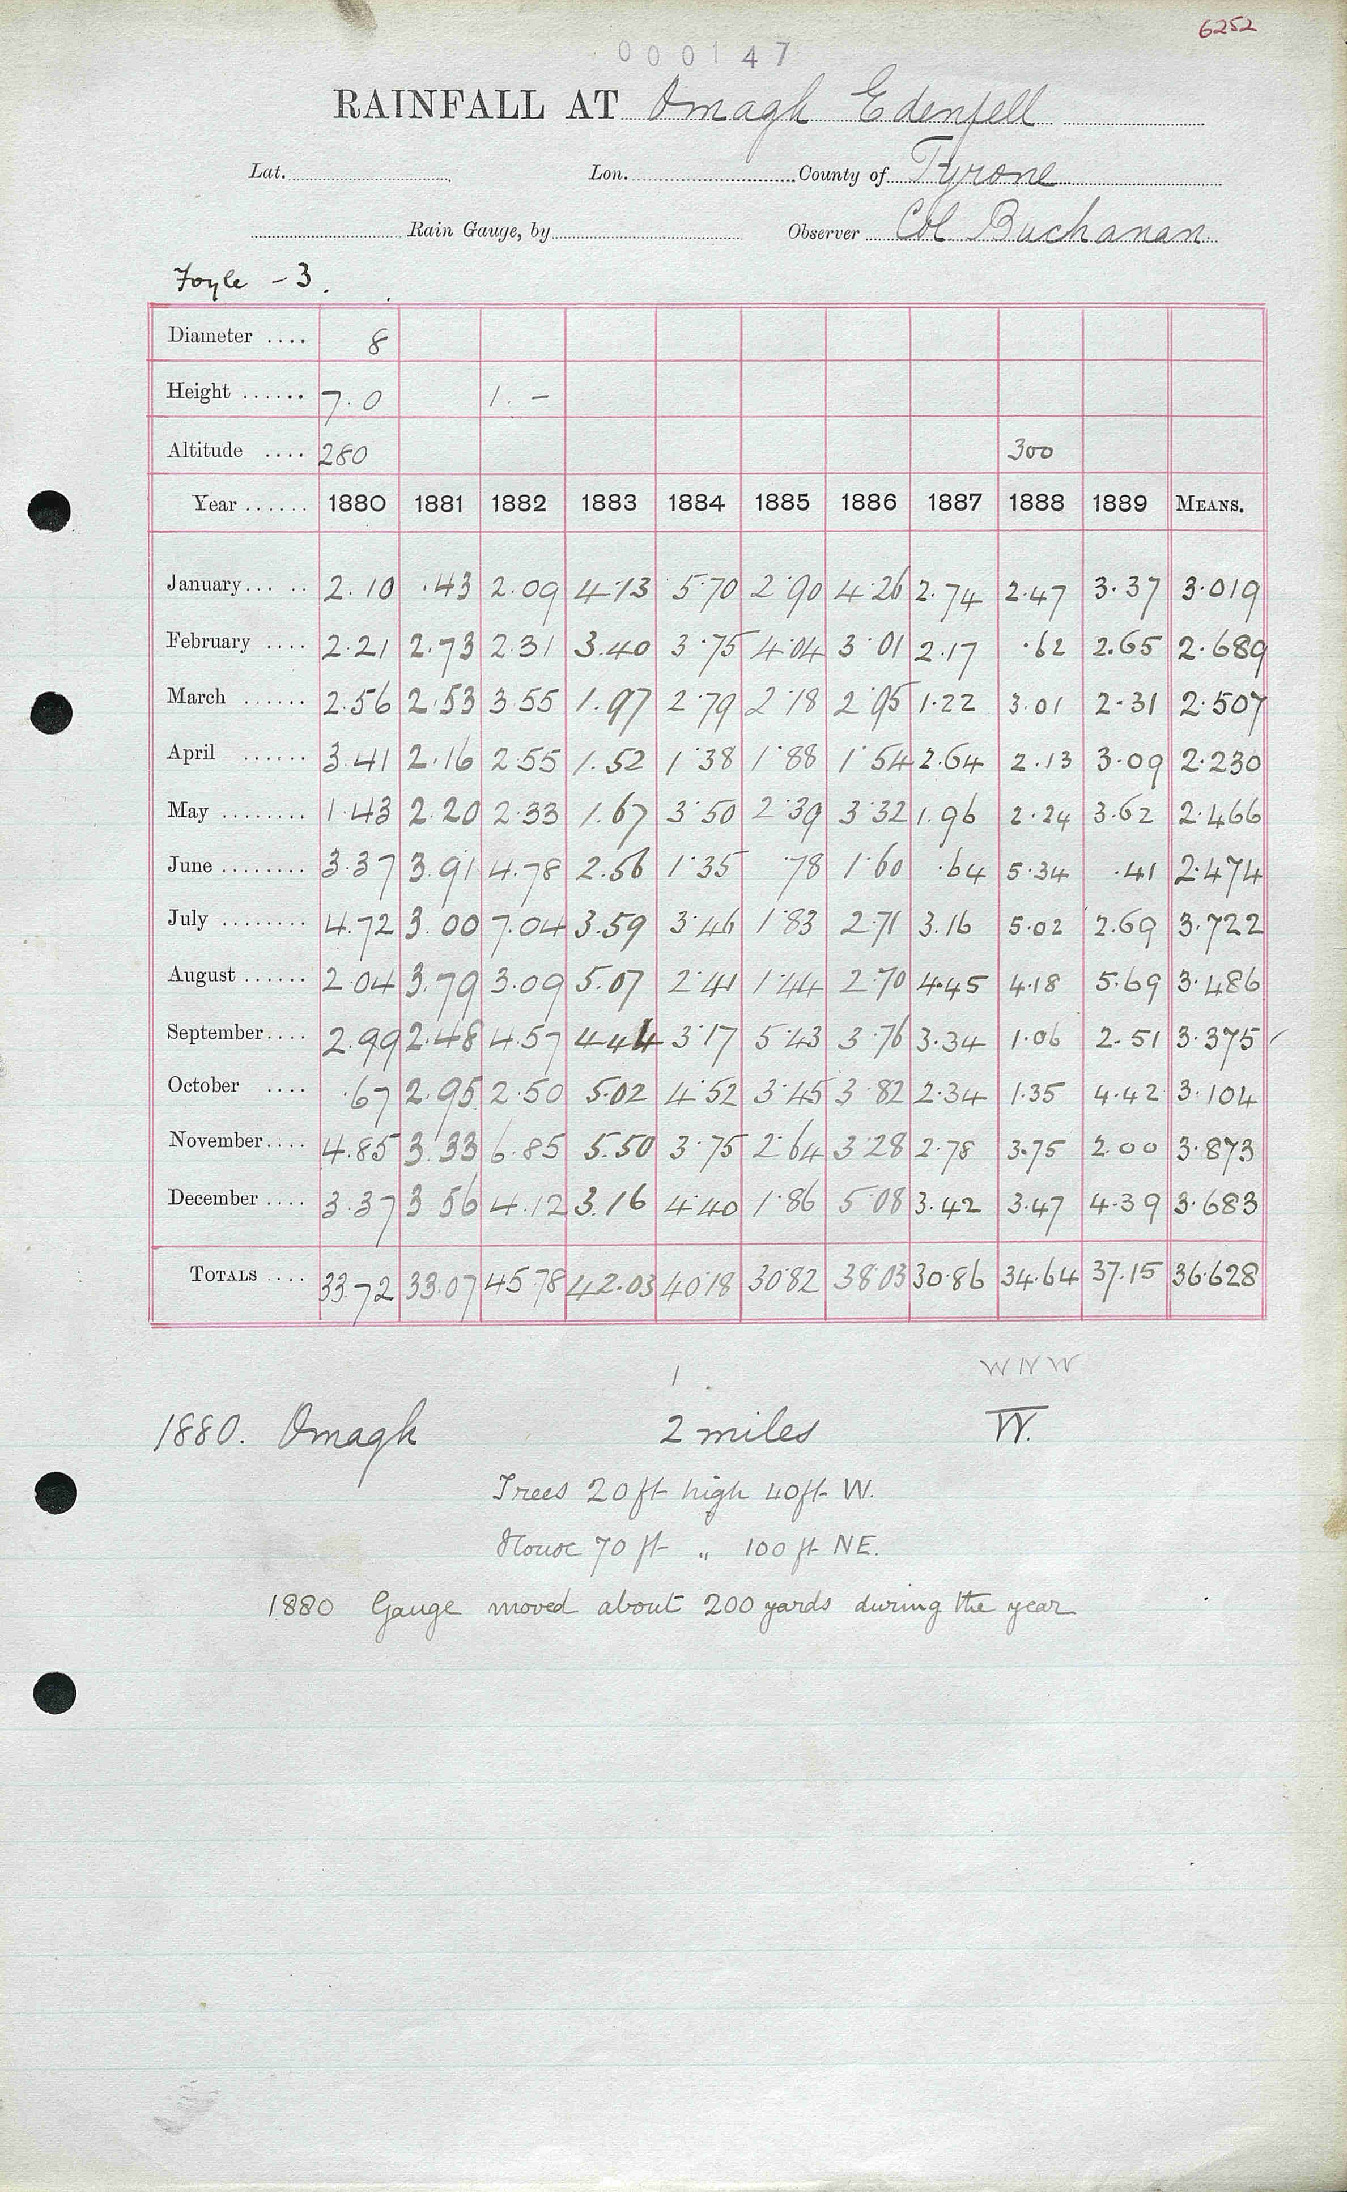 6252
000147
RAINFALL AT Omagh Edenfell
Lat. Lon. County of Tyrone
Rain Gauge, by Observer Col Buchanan
Foyle - 3.
Diameter .... 8
Height ...... 7.0 1. -
Altitude .... 280 300
Year ...... 1880 1881 1882 1883 1884 1885 1886 1887 1888 1889 MEANS.
January... .. 2.10 .43 2.09 4.13 5.70 2.90 4.26 2.74 2.47 3.37 3.019
February .... 2.21 2.73 2.31 3.40 3.75 4.04 3.01 2.17 .62 2.65 2.689
March ...... 2.56 2.53 3.55 1.97 2.79 2.18 2.95 1.22 3.01 2.31 2.507
April ...... 3.41 2.16 2.55 1.52 1.38 1.88 1.54 2.64 2.13 3.09 2.230
May ........ 1.43 2.20 2.33 1.67 3.50 2.39 3.32 1.96 2.24 3.62 2.466
June ........ 3.37 3.91 4.78 2.56 1.35 .78 1.60 .64 5.34 .41 2.474
July ........ 4.72 3.00 7.04 3.59 3.46 1.83 2.71 3.16 5.02 2.69 3.722
August ...... 2.04 3.79 3.09 5.07 2.41 1.44 2.70 4.45 4.18 5.69 3.486
September.... 2.99 2.48 4.57 4.44 3.17 5.43 3.76 3.34 1.06 2.51 3.375
October .... .67 2.95 2.50 5.02 4.52 3.45 3.82 2.34 1.35 4.42 3.104
November.... 4.85 3.33 6.85 5.50 3.75 2.64 3.28 2.78 3.75 2.00 3.873
December .... 3.37 3.56 4.12 3.16 4.40 1.86 5.08 3.42 3.47 4.39 3.683
TOTALS .... 33.72 33.07 45.78 42.03 40.18 30.82 38.03 30.86 34.64 37.15 36.628
1 WNW
1880. Omagh 2 miles W.
Trees 20 ft high 40 ft W.
House 70 ft „ 100 ft NE.
1880 Gauge moved about 200 yards during the year